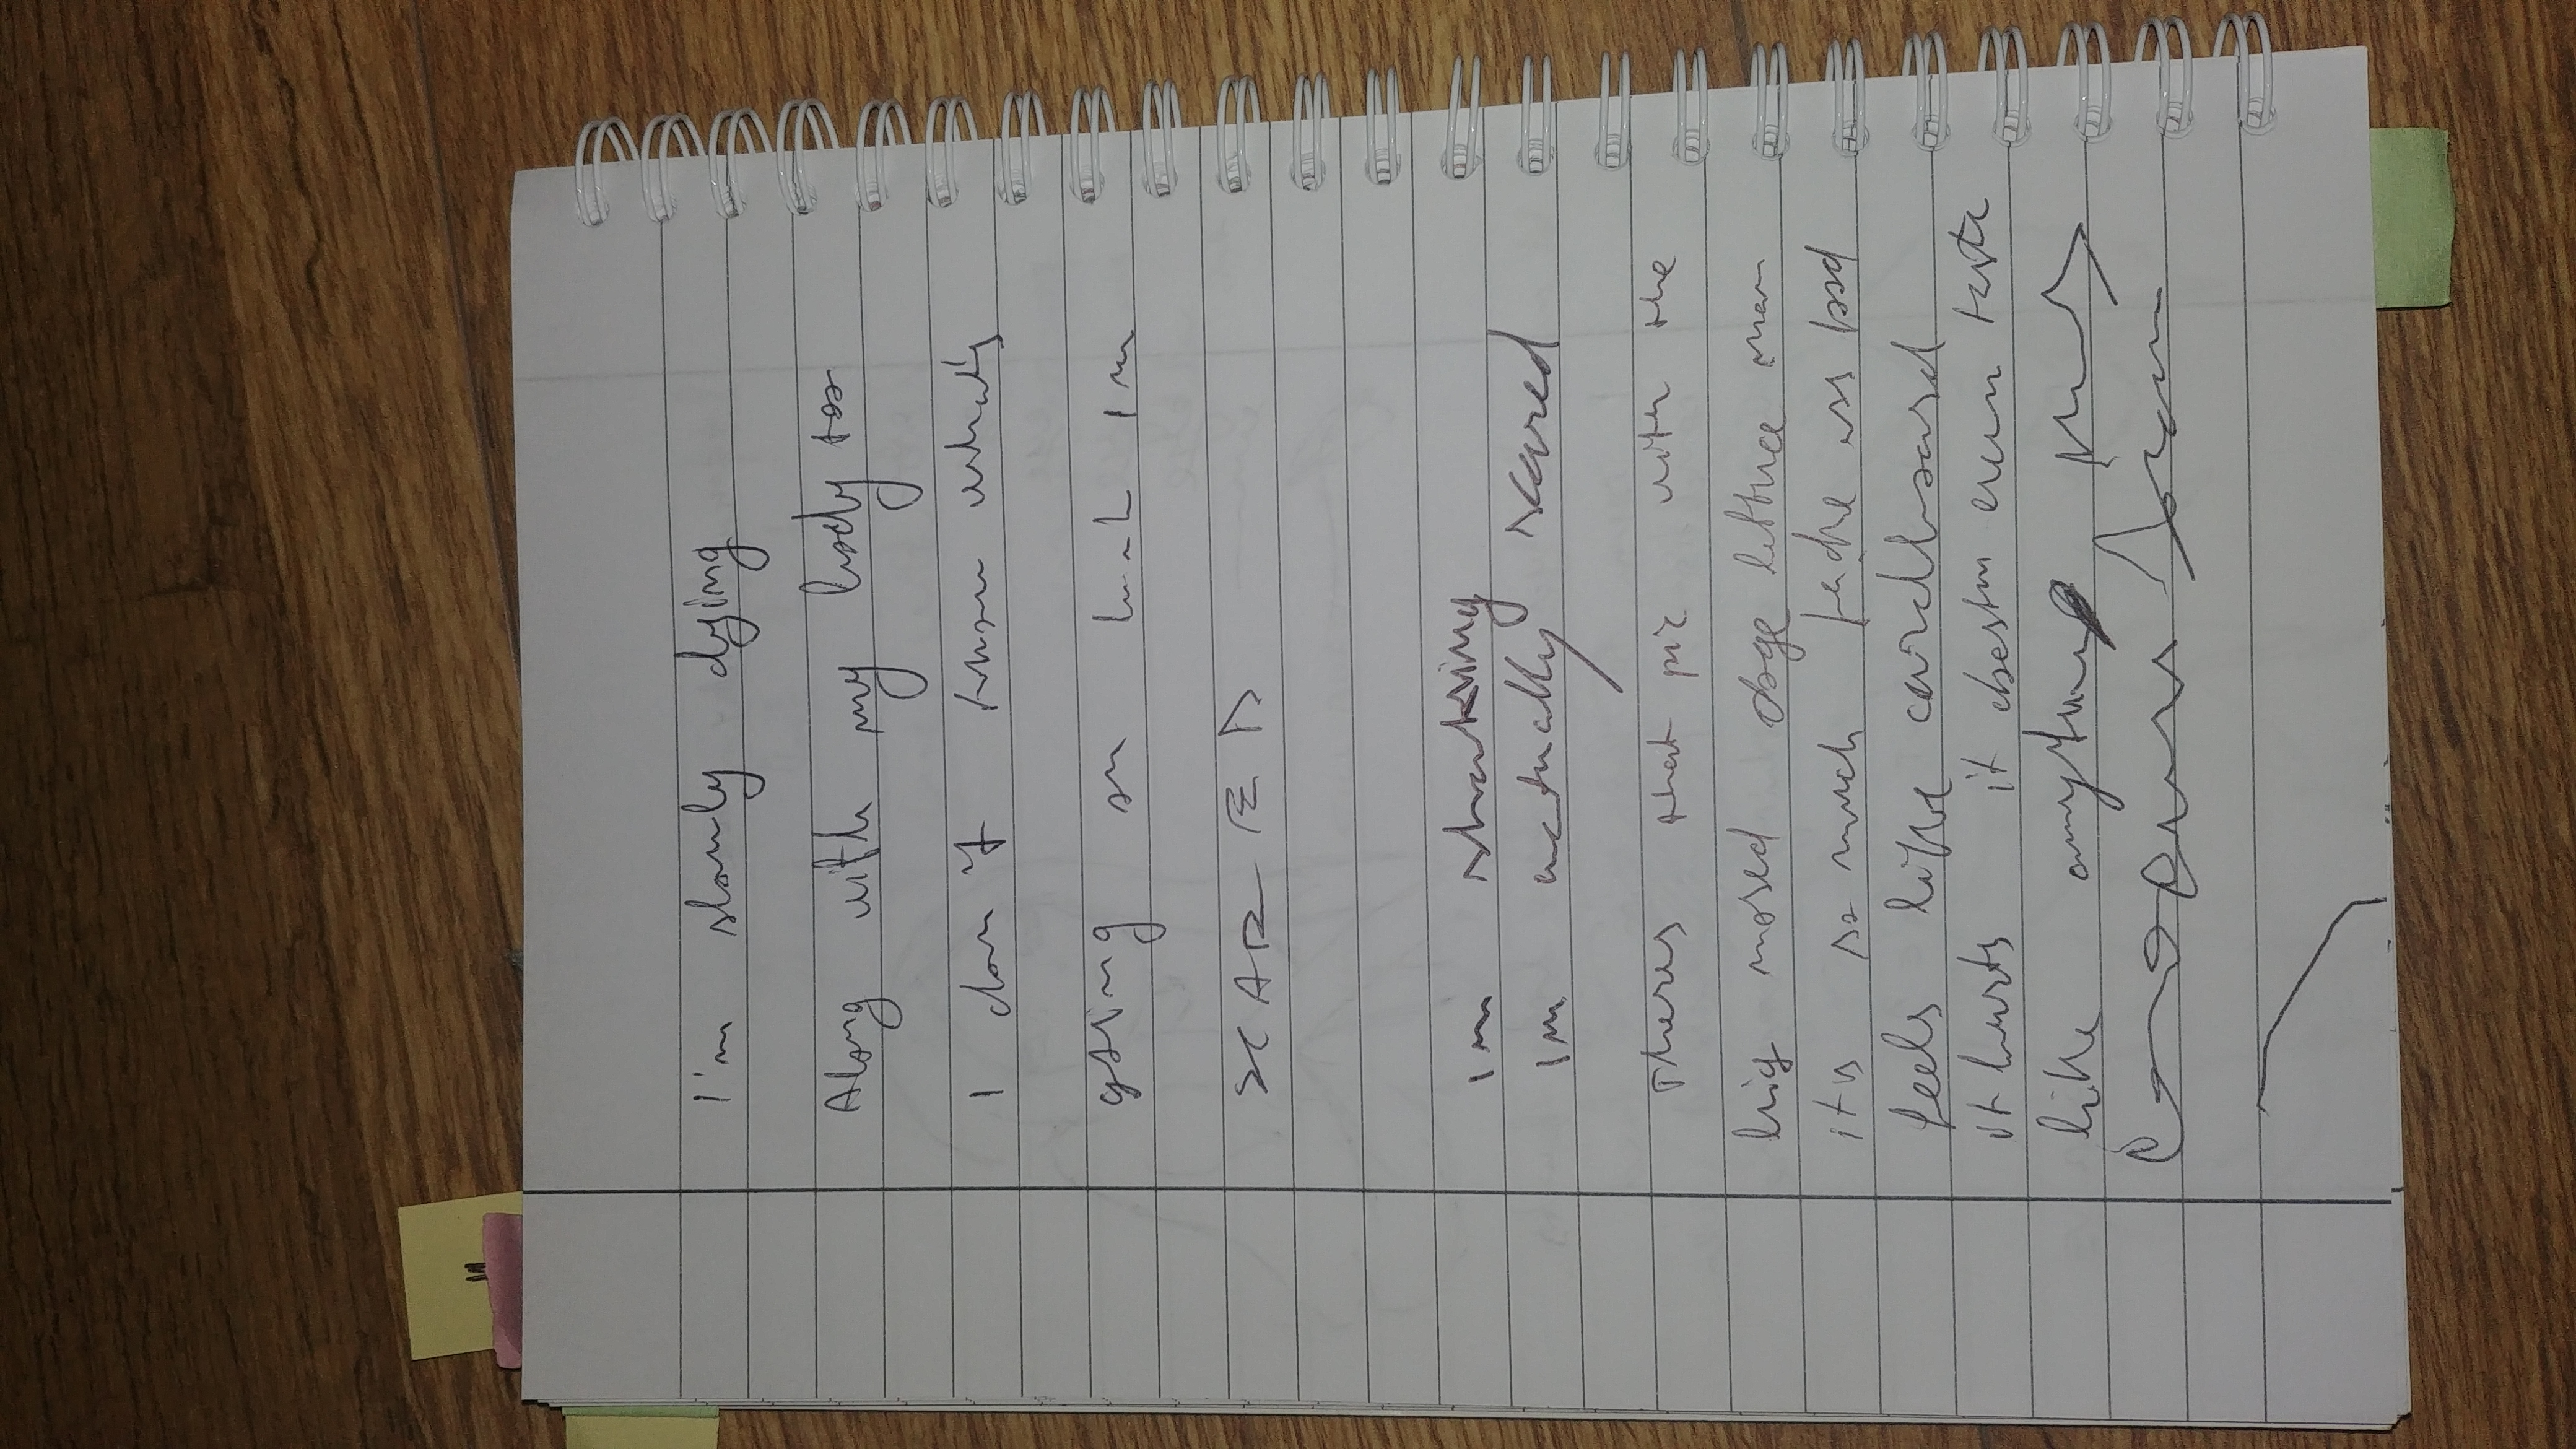 I'm slowly dying
Along with my body too
I don't know what's
going on but I'm
SCARED
Im shaking
Im actually scared
Theres that pic with the
big nosed doge lettuce man
its so much fucke ass pod
feels like cardboard
it hurts it doestn even taste
like anything